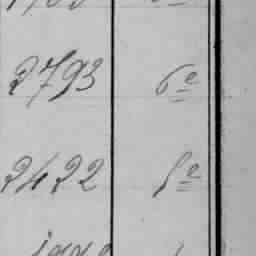 2793 6e
2422 5e